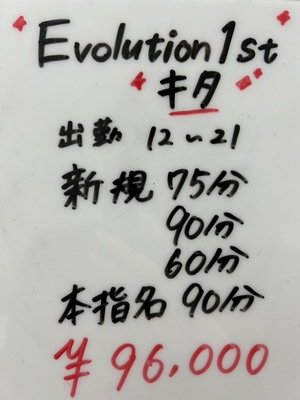 Evolution1st
キタ
出勤 12~21
新規 75分
90分
60分
本指名 90分
¥96.000